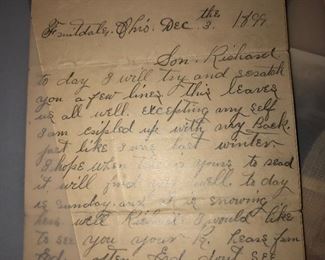 Fruitdale, Ohio. Dec the 3. 1899
Son. Richard
to day I will try and scratch
you a few lines. this leaves
us all well. excepting my self
I am cripled up with my Back.
just like I was last winter.
I hope when this is yours to read
it will find you well. to day
is sunday. and it is snowing
here. well Richard I would like
to see you